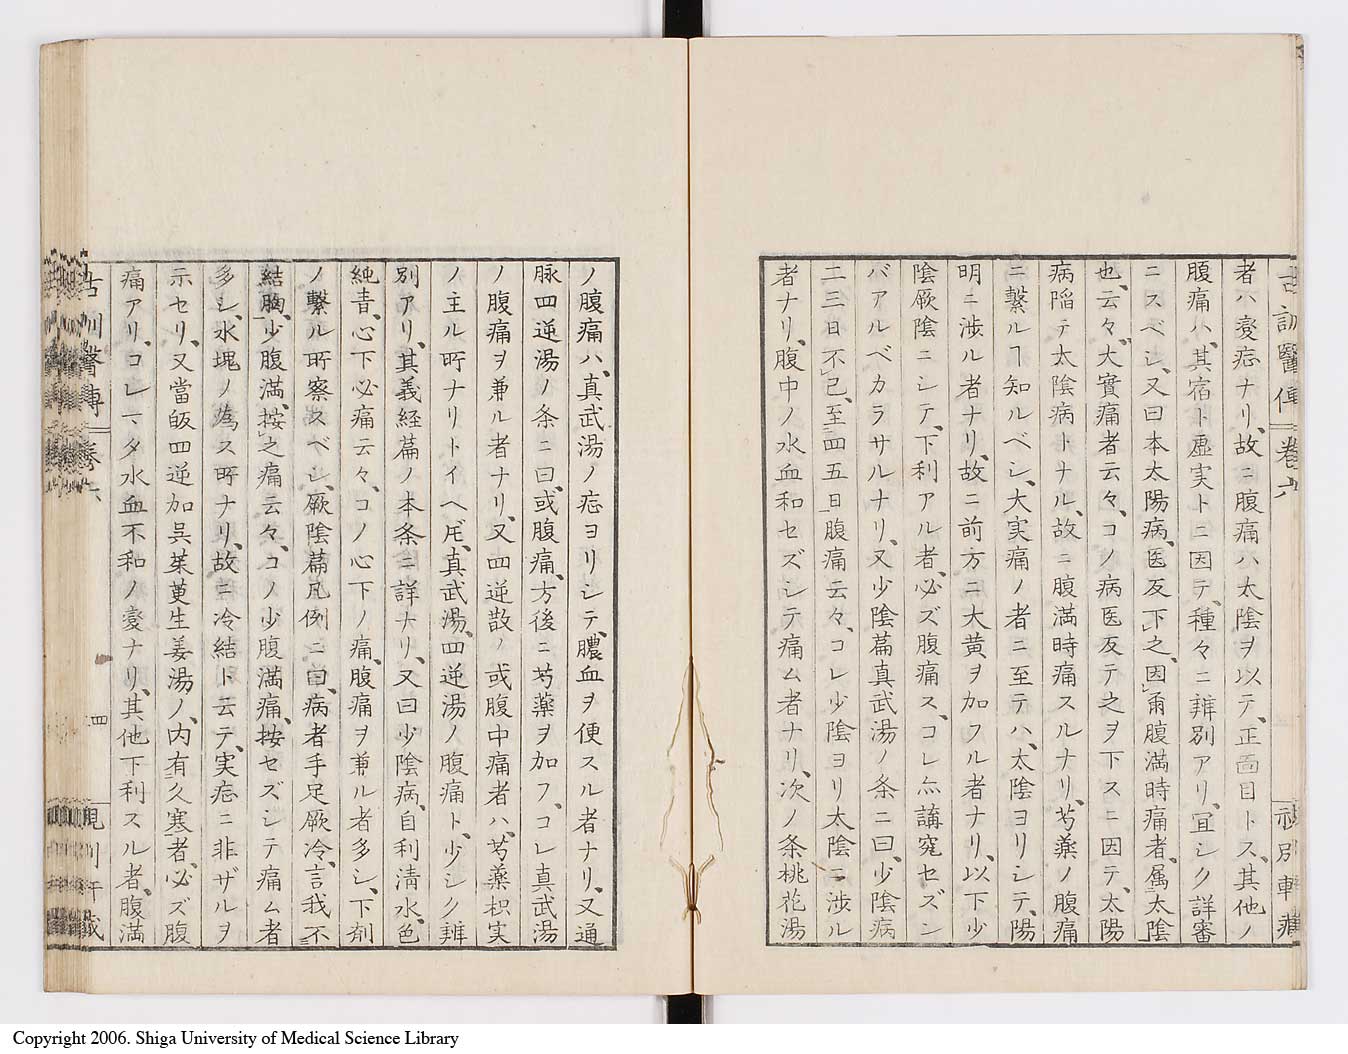 古訓醫傳 卷六
者ハ変症ナリ、故ニ腹痛ハ太陰ヲ以テ、正面目トス、其他ノ
腹痛ハ、其宿ト虚実トニ因テ、種々ニ辨別アリ、宜シク詳審
ニスベシ、又曰本太陽病、医反下之、因爾腹満時痛者、属太陰
也、云々、大實痛者云々、コノ病医反テ之ヲ下スニ因テ、太陽
病陥テ太陰病トナル、故ニ腹満時痛スルナリ、芍薬ノ腹痛
ニ繋ルヿ知ルベシ、大実痛ノ者ニ至テハ、太陰ヨリシテ、陽
明ニ渉ル者ナリ、故ニ前方ニ大黄ヲ加フル者ナリ、以下少
陰厥陰ニシテ、下利アル者、必ズ腹痛ス、コレ亦講究セズン
バアルベカラサルナリ、又少陰篇真武湯ノ条ニ曰、少陰病
二三日不已、至四五日腹痛云々、コレ少陰ヨリ太陰ニ渉ル
者ナリ、腹中ノ水血和セズシテ痛ム者ナリ、次ノ条桃花湯
ノ腹痛ハ、真武湯ノ症ヨリシテ、膿血ヲ便スル者ナリ、又通
脉四逆湯ノ条ニ曰、或腹痛、方後ニ芍薬ヲ加フ、コレ真武湯
ノ腹痛ヲ兼ル者ナリ、又四逆散ノ或腹中痛者ハ、芍薬枳実
ノ主ル所ナリトイヘ𪜈、真武湯、四逆湯ノ腹痛ト、少シク辨
別アリ、其義経篇ノ本条ニ詳ナリ、又曰少陰病、自利清水、色
純青、心下必痛云々、コノ心下ノ痛、腹痛ヲ兼ル者多シ、下剤
ノ繋ル所察スベシ、厥陰篇凡例ニ曰、病者手足厥冷、言我不
結胸、少腹満、按之痛云々、コノ少腹満痛、按セズシテ痛ム者
多シ、水塊ノ為ス所ナリ、故ニ冷結ト云テ、実症ニ非ザルヲ
示セリ、又當皈四逆加呉茱萸生姜湯ノ、内有久寒者、必ズ腹
痛アリ、コレマタ水血不和ノ変ナリ、其他下利スル者、腹満
古訓醫傳 卷六
四